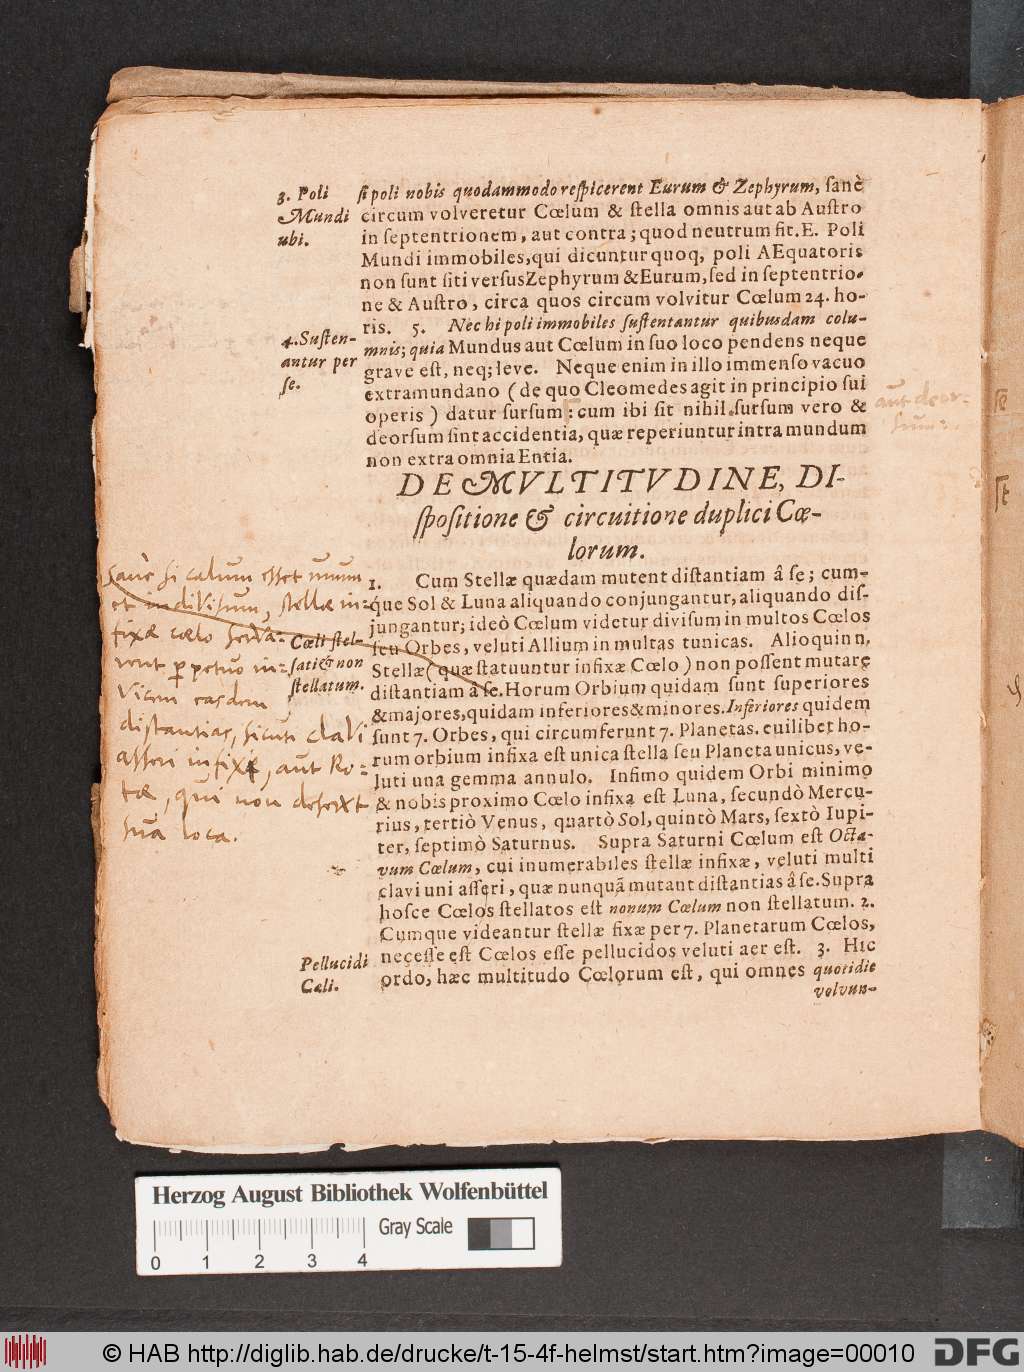 3. Poli
Mundi
ubi.
si poli nobis quodammodo respicerent Eurum & Zephyrum, sanè
circum volveretur Cœlum & stella omnis aut ab Austro
in septentrionem, aut contra; quod neutrum fit. E. Poli
Mundi immobiles, qui dicuntur quoq; poli AEquatoris
non sunt siti versus Zephyrum & Eurum, sed in septentrio-
ne & Austro, circa quos circum volvitur Cœlum 24. ho-
ris. 5. Nec hi poli immobiles sustentantur quibusdam colu-
4. Susten-
antur per
se.
mnis; quia Mundus aut Cœlum in suo loco pendens neque
grave est, neq; leve. Neque enim in illo immenso vacuo
extramundano (de quo Cleomedes agit in principio sui
operis) datur sursum: cum ibi sit nihil. sursum vero &
aut deor-
sum:
deorsum sint accidentia, quæ reperiuntur intra mundum
non extra omnia Entia.
DE MVLTITVDINE, DI-
spositione & circuitione duplici Cœ-
lorum.
sanè si cælum esset unum
et indivisum, stellæ in-
fixæ cælo serva-
rent perpetuo in-
vicem easdem
distantias, sicuti clavi
asseri infixi, aut Ro-
tæ, qui non deserut
sua loca.
1. Cum Stellæ quædam mutent distantiam â se; cum-
que Sol & Luna aliquando conjungantur, aliquando dis-
jungantur; ideò Cœlum videtur divisum in multos Cœlos
Cœli stel-
lati & non
stellatum.
seu Orbes, veluti Allium in multas tunicas. Alioquin n.
Stellæ (quæ statuuntur infixæ Cœlo) non possent mutare
distantiam â se. Horum Orbium quidam sunt superiores
& majores, quidam inferiores & minores. Inferiores quidem
sunt 7. Orbes, qui circumferunt 7. Planetas. cuilibet ho-
rum orbium infixa est unica stella seu Planeta unicus, ve-
luti una gemma annulo. Infimo quidem Orbi minimo
& nobis proximo Cœlo infixa est Luna, secundò Mercu-
rius, tertiò Venus, quartò Sol, quintò Mars, sextò Iupi-
ter, septimò Saturnus. Supra Saturni Cœlum est Octa-
vum Cœlum, cui inumerabiles stellæ infixæ, veluti multi
clavi uni asseri, quæ nunquã mutant distantias â se. Supra
hosce Cœlos stellatos est nonum Cœlum non stellatum. 2.
Cumque videantur stellæ fixæ per 7. Planetarum Cœlos,
Pellucidi
Cæli.
necesse est Cœlos esse pellucidos veluti aer est. 3. Hic
ordo, hæc multitudo Cœlorum est, qui omnes quotidie
volvun-
Herzog August Bibliothek Wolfenbüttel
Gray Scale
0 1 2 3 4
© HAB http://diglib.hab.de/drucke/t-15-4f-helmst/start.htm?image=00010
DFG